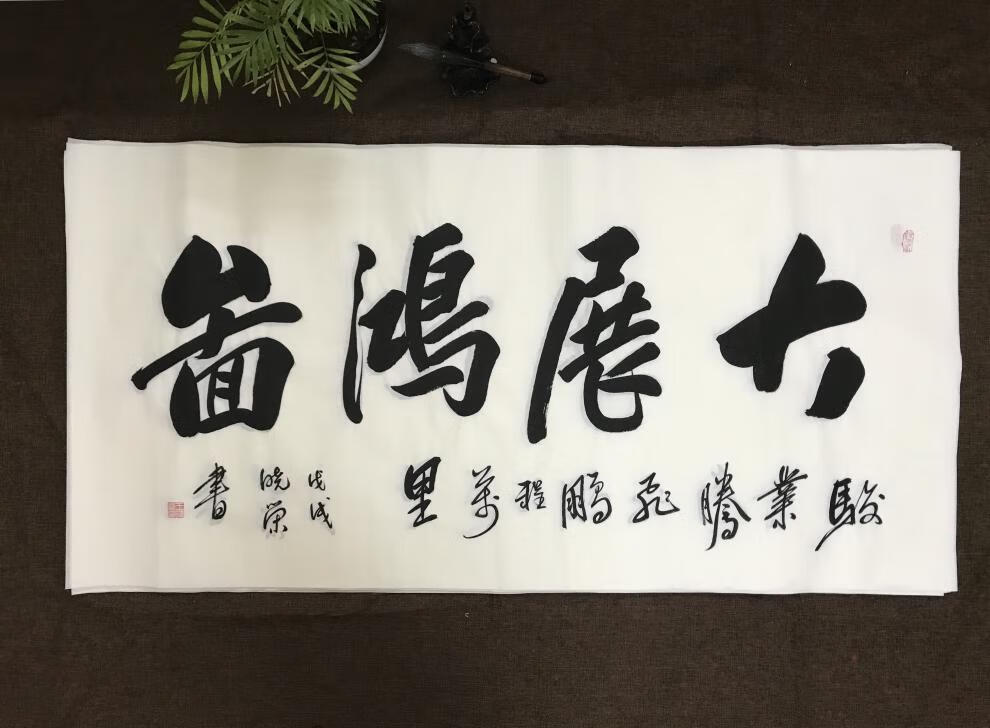 大展鴻圖
駿業騰飛鵬程萬里
戊戌
曉榮
書